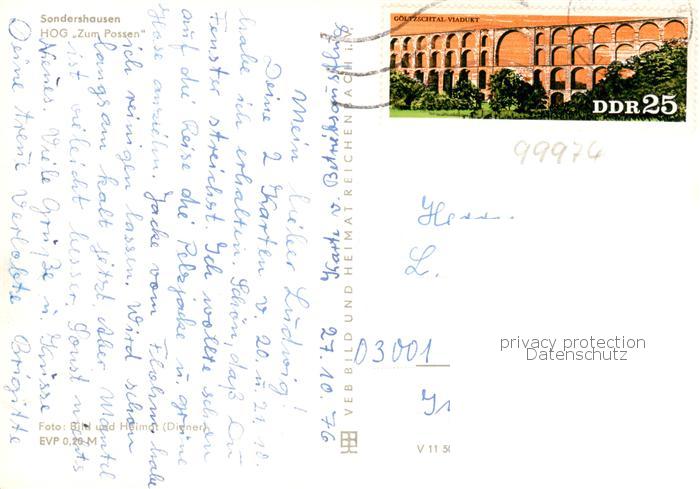 Sondershausen
HOG „Zum Possen"
27.10.76
Mein lieber Ludwig!
Deine 2 Karten v. 20. u. 21.10.
habe ich erhalten. Schön, daß Du
Fenster streichst. Ich wollte schon
auf die Reise die Pelzjacke u. grüne
Hose anziehn. Jacke vom Flohm. habe
ich reinigen lassen. Wird schon
langsam kalt jetzt. Aber Mantel
ist vieleicht besser. Sonst nichts
Neues. Viele Grüße u. Küsse
Deine treue Verlobte Brigitte
Foto: Bild und Heimat (Diener)
EVP 0,20 M
VEB BILD UND HEIMAT REICHENBACH i. V.
V 11 50
GÖLTZSCHTAL-VIADUKT
DDR 25
99974
Herrn
L.
03001
privacy protection
Datenschutz